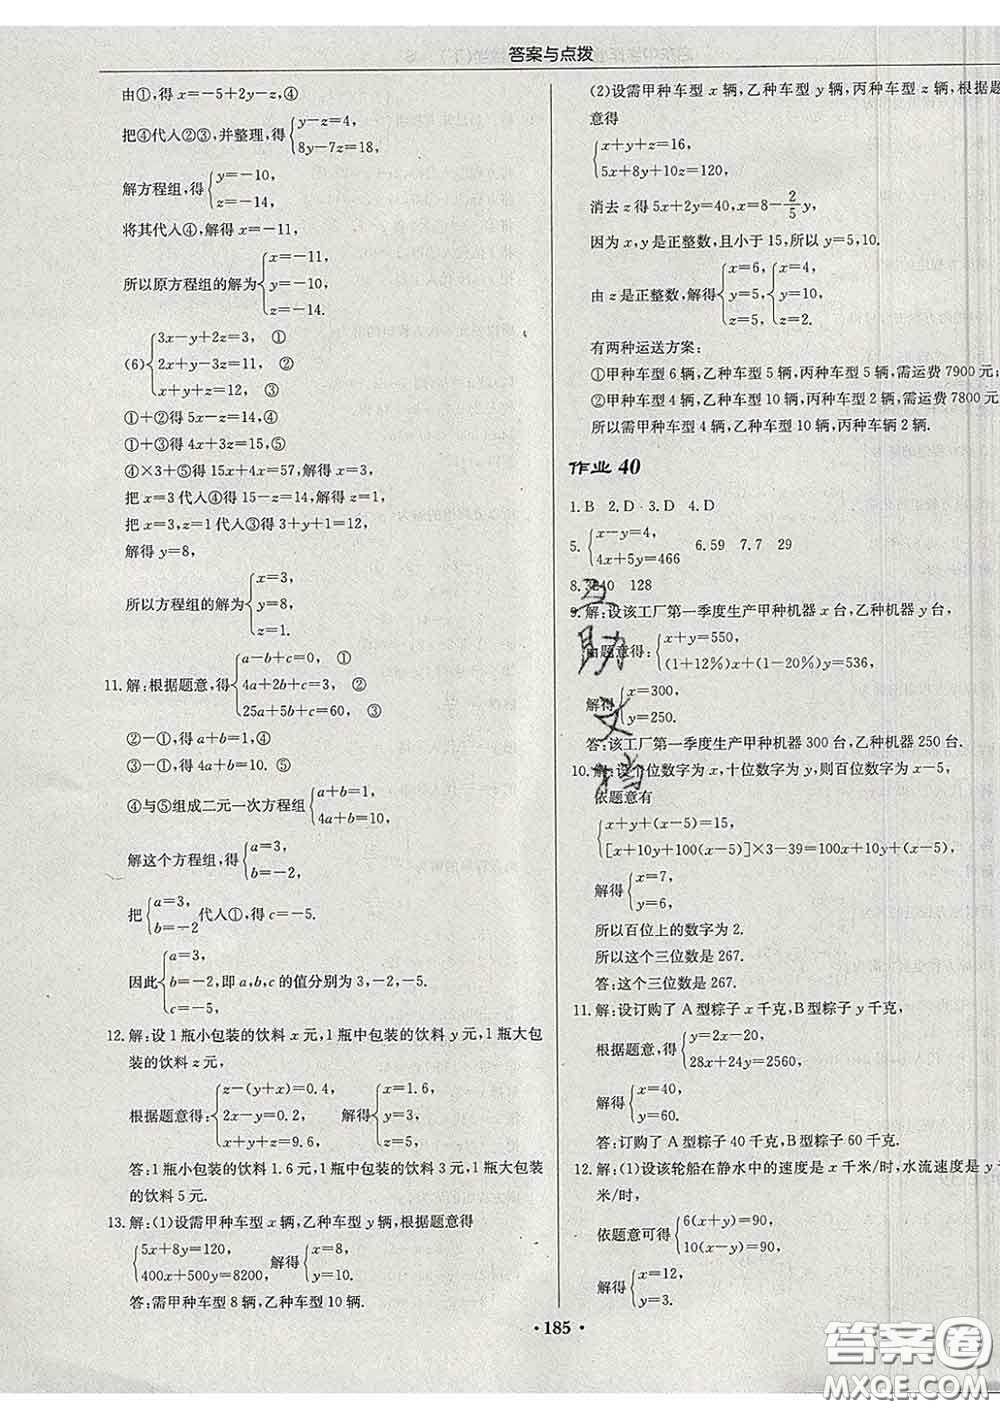 答案与点拨
由①,得 x=-5+2y-z,④
把④代入②③,并整理,得{y-z=4,
8y-7z=18,
解方程组,得{y=-10,
z=-14,
将其代入④,解得 x=-11,
所以原方程组的解为{x=-11,
y=-10,
z=-14.
(6){3x-y+2z=3, ①
2x+y-3z=11, ②
x+y+z=12, ③
①+②得 5x-z=14,④
①+③得 4x+3z=15,⑤
④×3+⑤得 15x+4x=57,解得 x=3,
把 x=3 代入④得 15-z=14,解得 z=1,
把 x=3,z=1 代入③得 3+y+1=12,
解得 y=8,
所以方程组的解为{x=3,
y=8,
z=1.
11.解:根据题意,得{a-b+c=0, ①
4a+2b+c=3, ②
25a+5b+c=60, ③
②-①,得 a+b=1,④
③-①,得 4a+b=10. ⑤
④与⑤组成二元一次方程组{a+b=1,
4a+b=10,
解这个方程组,得{a=3,
b=-2,
把{a=3,
b=-2代入①,得 c=-5.
因此{a=3,
b=-2,即 a,b,c 的值分别为 3,-2,-5.
c=-5,
12.解:设 1 瓶小包装的饮料 x 元,1 瓶中包装的饮料 y 元,1 瓶大包
装的饮料 z 元,
根据题意得:{z-(y+x)=0.4,
2x-y=0.2,
x+y+z=9.6,
解得{x=1.6,
y=3,
z=5,
答:1 瓶小包装的饮料 1.6 元,1 瓶中包装的饮料 3 元,1 瓶大包装
的饮料 5 元.
13.解:(1)设需甲种车型 x 辆,乙种车型 y 辆,根据题意得
{5x+8y=120,
400x+500y=8200,
解得{x=8,
y=10.
答:需甲种车型 8 辆,乙种车型 10 辆.
(2)设需甲种车型 x 辆,乙种车型 y 辆,丙种车型 z 辆,根据题
意得
{x+y+z=16,
5x+8y+10z=120,
消去 z 得 5x+2y=40,x=8-2/5y,
因为 x,y 是正整数,且小于 15,所以 y=5,10.
由 z 是正整数,解得{x=6,
y=5,
z=5,
{x=4,
y=10,
z=2.
有两种运送方案:
①甲种车型 6 辆,乙种车型 5 辆,丙种车型 5 辆,需运费 7900 元;
②甲种车型 4 辆,乙种车型 10 辆,丙种车型 2 辆,需运费 7800 元.
所以需甲种车型 4 辆,乙种车型 10 辆,丙种车辆 2 辆.
作业 40
1.B 2.D 3.D 4.D
5.{x-y=4,
4x+5y=466
6.59 7.7 29
8. 128
9.解:设该工厂第一季度生产甲种机器 x 台,乙种机器 y 台,
由题意得:{x+y=550,
(1+12%)x+(1-20%)y=536,
解得{x=300,
y=250.
答:该工厂第一季度生产甲种机器 300 台,乙种机器 250 台.
10.解:设个位数字为 x,十位数字为 y,则百位数字为 x-5,
依题意有
{x+y+(x-5)=15,
[x+10y+100(x-5)]×3-39=100x+10y+(x-5),
解得{x=7,
y=6,
所以百位上的数字为 2.
所以这个三位数是 267.
答:这个三位数是 267.
11.解:设订购了 A 型粽子 x 千克,B型粽子 y 千克,
根据题意,得{y=2x-20,
28x+24y=2560,
解得{x=40,
y=60.
答:订购了 A 型粽子 40 千克,B 型粽子 60 千克.
12.解:(1)设该轮船在静水中的速度是 x 千米/时,水流速度是 y 千
米/时,
依题意可得{6(x+y)=90,
10(x-y)=90,
解得{x=12,
y=3.
• 185 •
互助文档
答案圈
MXQE.COM